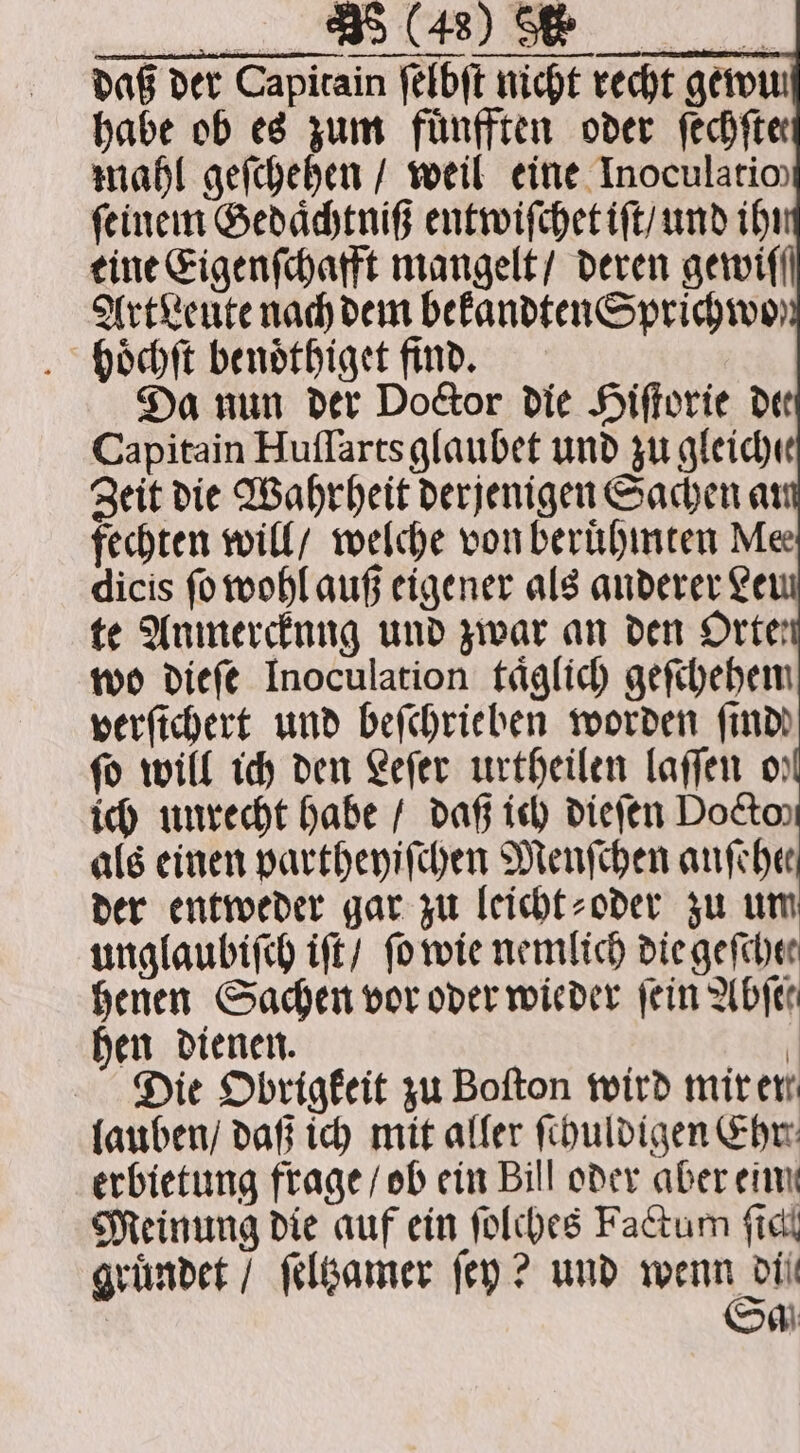 (48)
daß der Capitain ſelbſt nicht recht gewu
habe ob es zum fuͤnfften oder ſechſte
mahl geſchehen / weil eine Inoculatio
ſeinem Gedaͤchtniß entwiſchet iſt / und ih
eine Eigenſchafft mangelt / deren gewiſſ
Art Leute nach dem bekandten Sprichwo
hoͤchſt benoͤthiget find.
Da nun der Doctor die Hiſtorie de
Capitain Huſſarts glaubet und zu gleich
Zeit die Wahrheit derjenigen Sachen an
fechten will / welche von beruͤhmten Me
dicis ſo wohl auß eigener als anderer Leu
te Anmercknng und zwar an den Orte
wo dieſe Inoculation taͤglich geſchehen
verſichert und beſchrieben worden ſind
ſo will ich den Leſer urtheilen laſſen o
ich unrecht habe / daß ich dieſen Docto
als einen partheyiſchen Menſchen anſehe
der entweder gar zu leicht⸗oder zu un
unglaubiſch iſt / ſo wie nemlich die geſche
henen Sachen vor oder wieder ſein Abſe
hen dienen.
Die Obrigkeit zu Boſton wird mir er
lauben / daß ich mit aller ſchuldigen Ehr
erbietung frage / ob ein Bill oder aber ein
Meinung die auf ein ſolches Factum ſic
gruͤndet / ſeltzamer ſey ? und wenn di
Sa